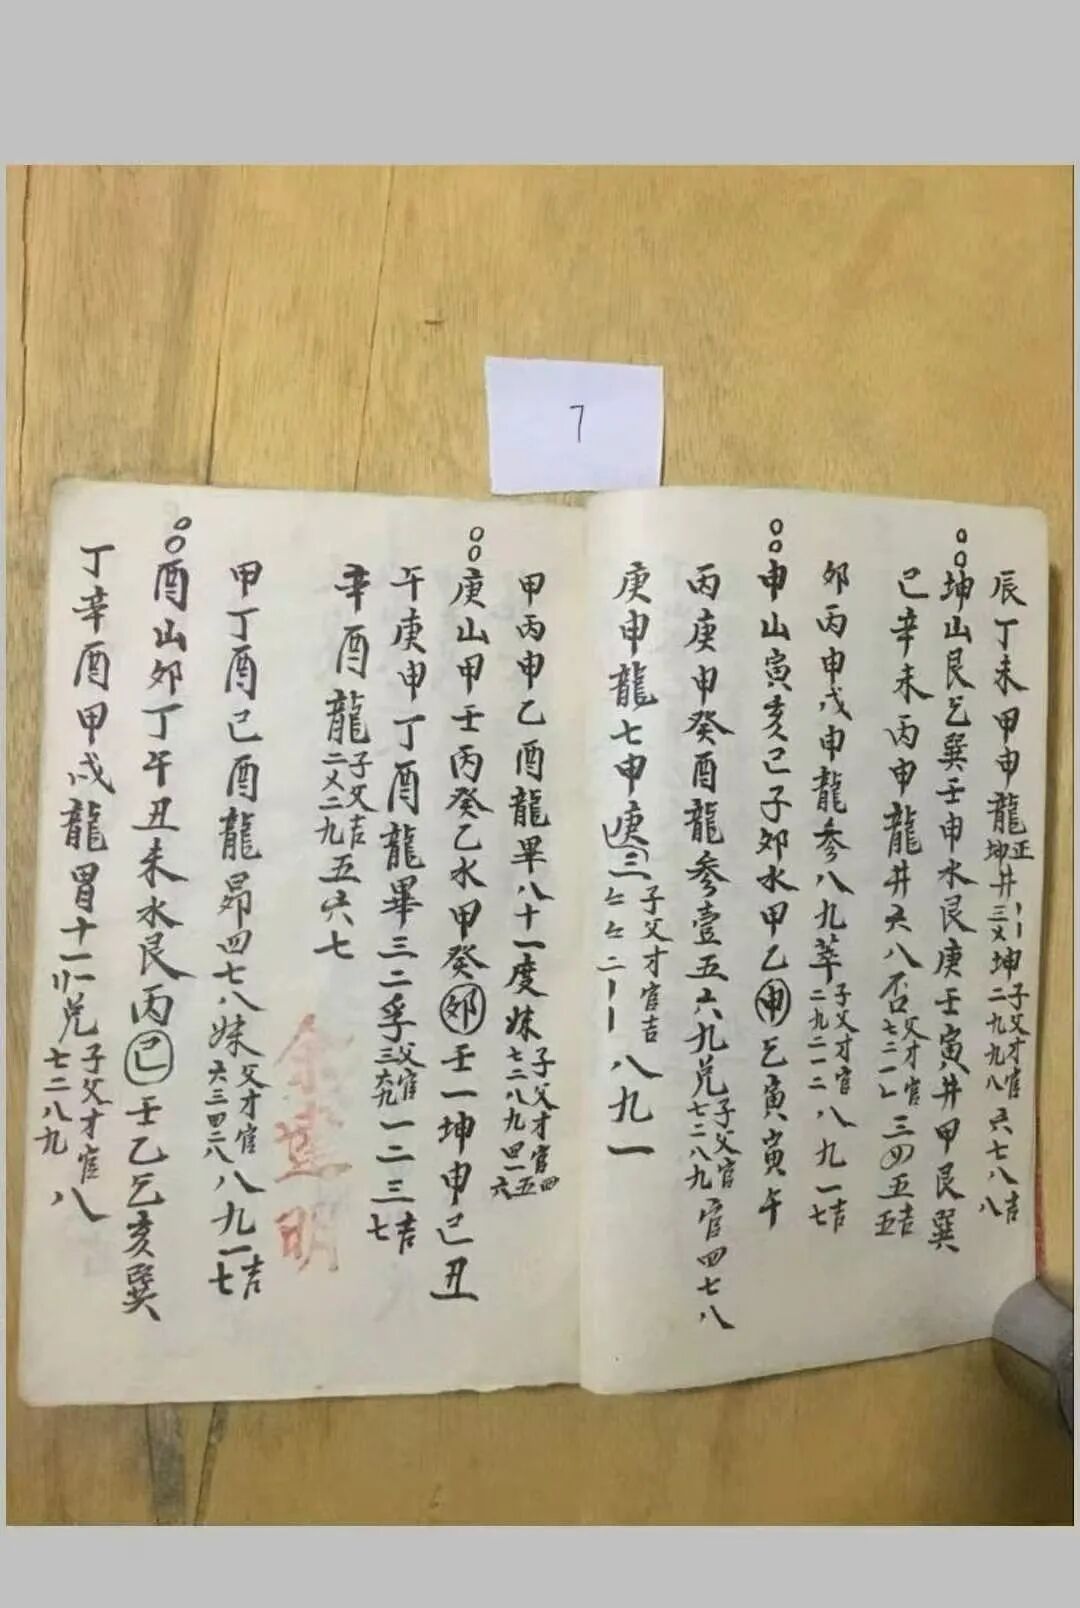 7
辰丁未甲申龍正坤井三乂坤子父才官二九九八六七八吉八
坤山艮乞巽壬申水艮庚壬寅井甲艮巽
己辛未丙申龍井六八否父才官七二一三四五吉五
夘丙申戊申龍參八九萃子父才官二九二一二八九一吉七
申山寅亥己子夘水甲乙申乞寅寅午
丙庚申癸酉龍參壹五六九兑子父官七二八九官四七八
庚申龍七申庚三子父才官吉八九一
甲丙申乙酉龍畢八十一度妹子父才官四七二八九四一五六
庚山甲壬丙癸乙水甲癸夘壬一坤申己丑
午庚申丁酉龍畢三二孚父官三六九一二三吉七
辛酉龍子父吉二乂二九五六七
甲丁酉己酉龍昴四七八妹父才官六三四二八八九一吉七
酉山夘丁午丑未水艮丙己壬乙乞亥巽
丁辛酉甲戍龍胃十一归兑子父才官七二八九八